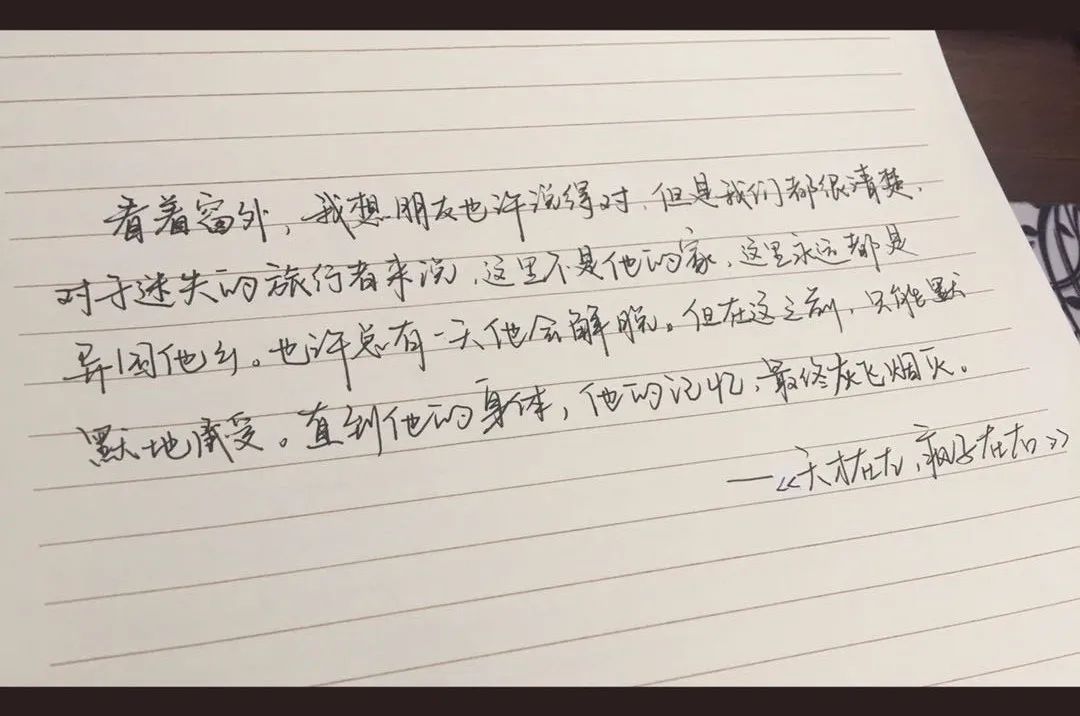 看着窗外，我想朋友也许说得对，但是我们都很清楚，
对于迷失的旅行者来说，这里不是他的家，这里永远都是
异国他乡。也许总有一天他会解脱。但在这之前，只能默
默地承受。直到他的身体，他的记忆，最终灰飞烟灭。
—《天才在左，疯子在右》